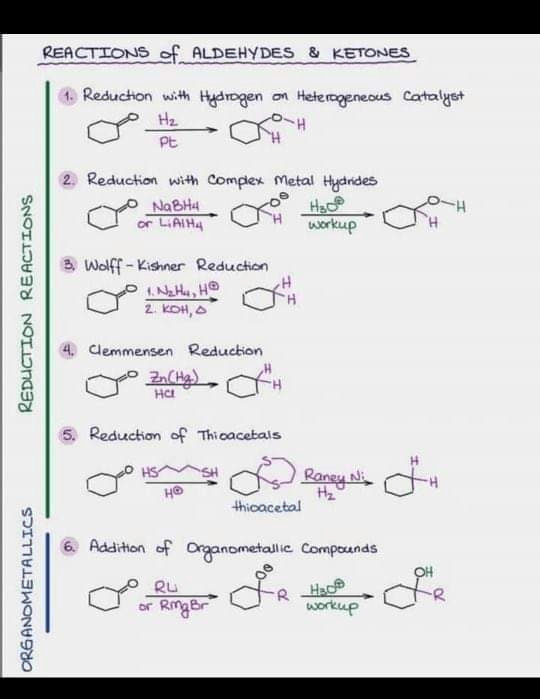 REACTIONS of ALDEHYDES & KETONES
REDUCTION REACTIONS
1. Reduction with Hydrogen on Heterogeneous Catalyst
O H2 O-H
Pt H
2. Reduction with Complex Metal Hydrides
O NaBH4 O⊖ H3O⊕ O-H
or LiAlH4 H workup H
3. Wolff-Kishner Reduction
O 1. N2H4, H⊕ H
2. KOH, Δ H
4. Clemmensen Reduction
O Zn(Hg) H
HCl H
5. Reduction of Thioacetals
O HS SH S Raney Ni H
H⊕ S H2 H
thioacetal
ORGANOMETALLICS
6. Addition of Organometallic Compounds
O RLi O⊖ H3O⊕ OH
or RMgBr R workup R